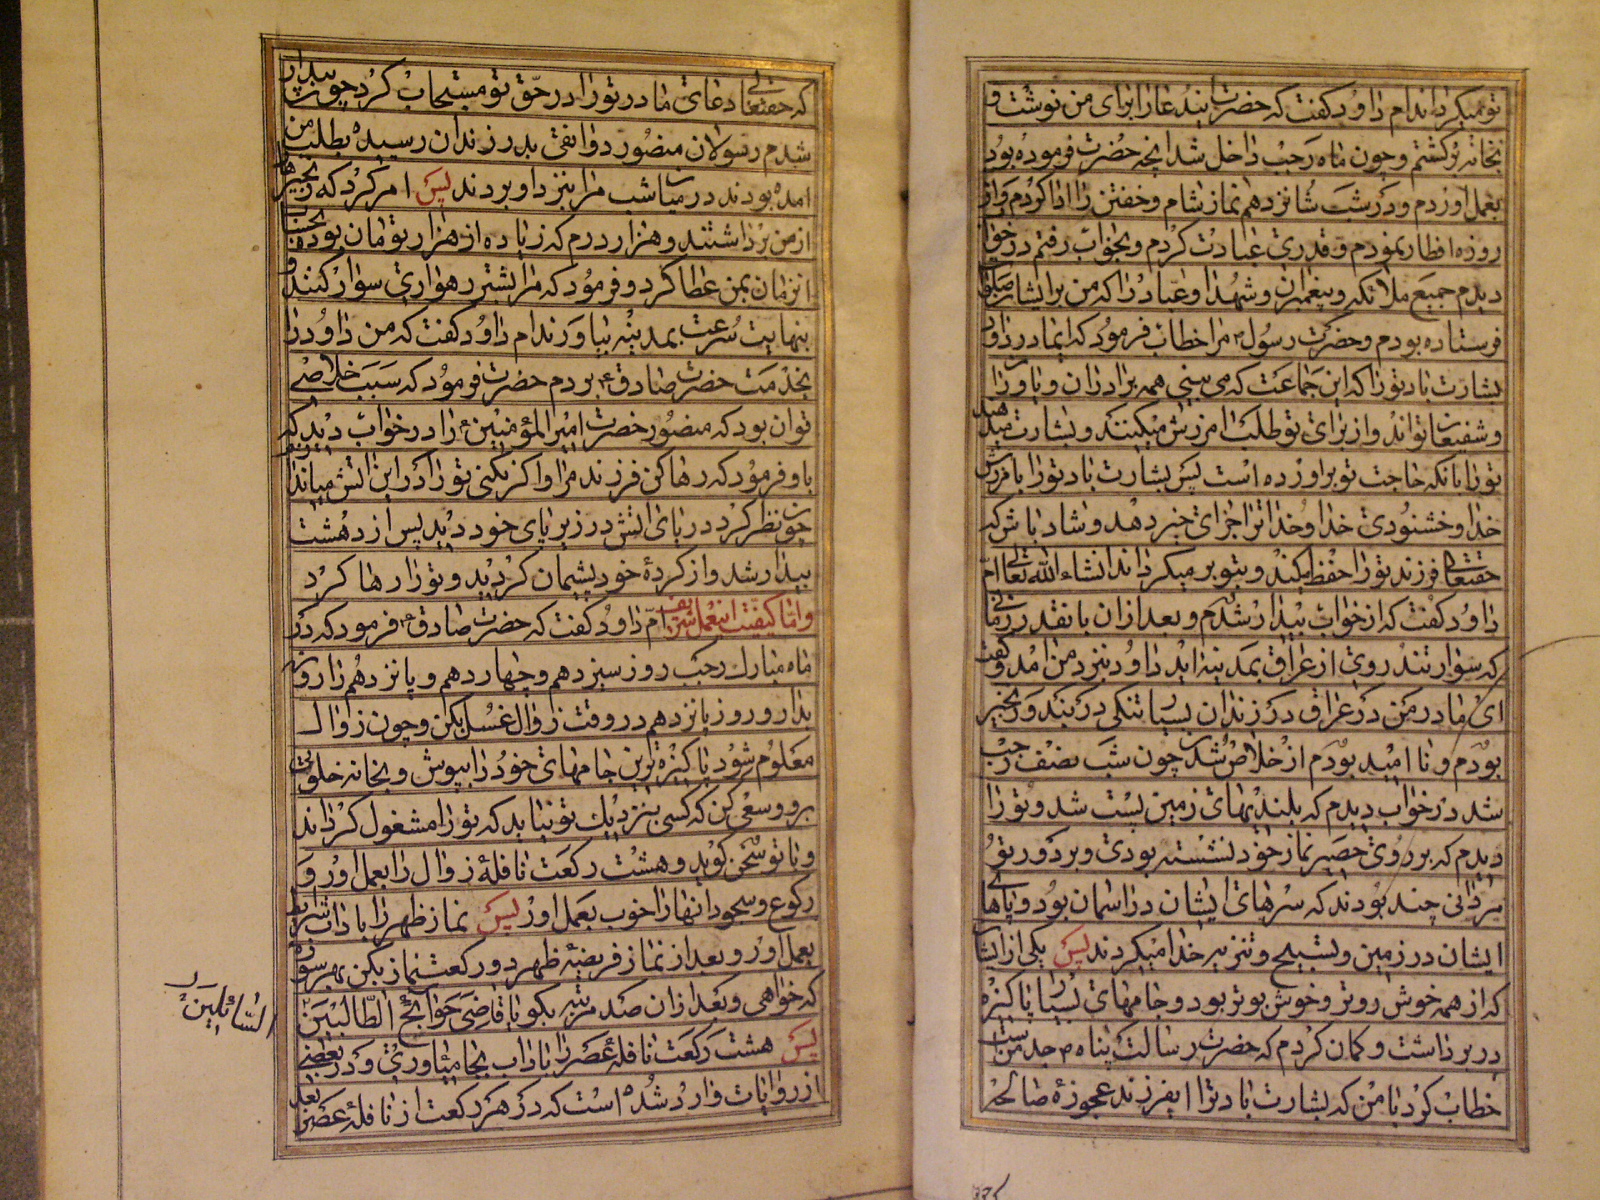 تو میکرداند ام داود کفت که حضرت ایندعا را برای من نوشت و
بخانه برکشتم و چون ماه رجب داخل شد انچه حضرت فرموده بود
بعمل اوردم و در شب شانزدهم نماز شام و خفتن را ادا کردم و از
روزه افطار نمودم و قدری عبادت کردم و بخواب رفتم در خواب
دیدم جمیع ملائکه و پیغمبران و شهدا و عباد را که من بر ایشان صلوات
فرستاده بودم و حضرت رسول ص مرا خطاب فرمود که ایمادر داود
بشارت باد تو را که این جماعت که می بینی همه برادران و یاوران
و شفیعان تواند و از برای تو طلب امرزش میکنند و بشارت میدهند
تو را بانکه حاجت تو براورده است پس بشارت باد تو را بامرزش
خدا و خشنودی خدا و خدا ترا جزای خیر دهد و شاد باش که
حقتعالی فرزند تو را حفظ میکند و بتو بر میکرداند انشاء الله تعالی ام
داود کفت که از خواب بیدار شدم و بعد از ان بانقدر زمانی
که سوار تند روی از عراق بمدینه اید داود بنزد من امد و کفت
ای مادر من در عراق در زندان بسیار تنکی در بند و زنجیر
بودم و نا امید بودم از خلاص شدن چون شب نصف رجب
شد در خواب دیدم که بلندیهای زمین پست شد و تو را
دیدم که بر روی حصیر نماز خود نشسته بودی و بر دور تو
مردانی چند بودند که سرهای ایشان در اسمان بود و پاهای
ایشان در زمین و تسبیح و تنزیه خدا میکردند پس یکی از ایشان
که از همه خوش روتر و خوش بوتر بود و جامهای بسیار پاکیزه
در بر داشت و کمان کردم که حضرت رسالت پناه ص جد من است
خطاب کرد با من که بشارت باد ترا ایفرزند عجوزه صالحه
که حقتعالی دعای مادر تو را در حق تو مستجاب کرد چون بیدار
شدم رسولان منصور دوانقی بدر زندان رسیده بطلب من
امده بودند در میان شب مرا بنزد او بردند پس امر کرد که زنجیرها
از من برداشتند و هزار درم که زیاده از هزار تومان بوده بحساب
انزمان بمن عطا کرد و فرمود که مرا بشتر رهواری سوار کنند و
بنهایت سرعت بمدینه بیاورند ام داود کفت که من داود را
بخدمت حضرت صادق ع بردم حضرت فرمود که سبب خلاصی
تو ان بود که منصور حضرت امیر المؤمنین ع را در خواب دید که
باو فرمود که رها کن فرزند مرا و اکر نکنی تو را در این اتش میاندازم
چون نظر کرد دریای اتش در زیر پای خود دید پس از دهشت
بیدار شد و از کرده خود پشیمان کردید و تو را رها کرد
و اما کیفیت اینعمل شریف ام داود کفت که حضرت صادق ع فرمود که در
ماه مبارك رجب روز سیزدهم و چهاردهم و پانزدهم را روزه
بدار و روز پانزدهم در وقت زوال غسل بکن و چون زوال
معلوم شود پاکیزه ترین جامهای خود را بپوش و بخانه خلوتی
برو و سعی کن که کسی بنزدیك تو نیاید که تو را مشغول کرداند
و با تو سخن کوید و هشت رکعت نافله زوال را بعمل اور و
رکوع و سجود انها را خوب بعمل اور پس نماز ظهر را با داب شرایط
بعمل اور و بعد از نماز فریضه ظهر دو رکعت نماز بکن بهر سوره
که خواهی و بعد از ان صد مرتبه بکو یا قاضی حوائج الطالبین
السائلین
پس هشت رکعت نافله عصر را باداب بجا میاوری و در بعضی
از روایات وارد شده است که در هر رکعت از نافله عصر بعد